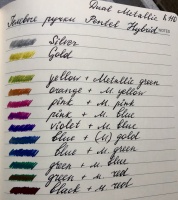 Dual Metallic K110
Гелевые ручки Pentel Hybrid
Silver
Gold
yellow + Metallic green
orange + M. yellow
pink + M. pink
pink + M. blue
violet + M. blue
blue + (M) gold
blue + M. green
green + M. blue
green + M. red
black + M. red